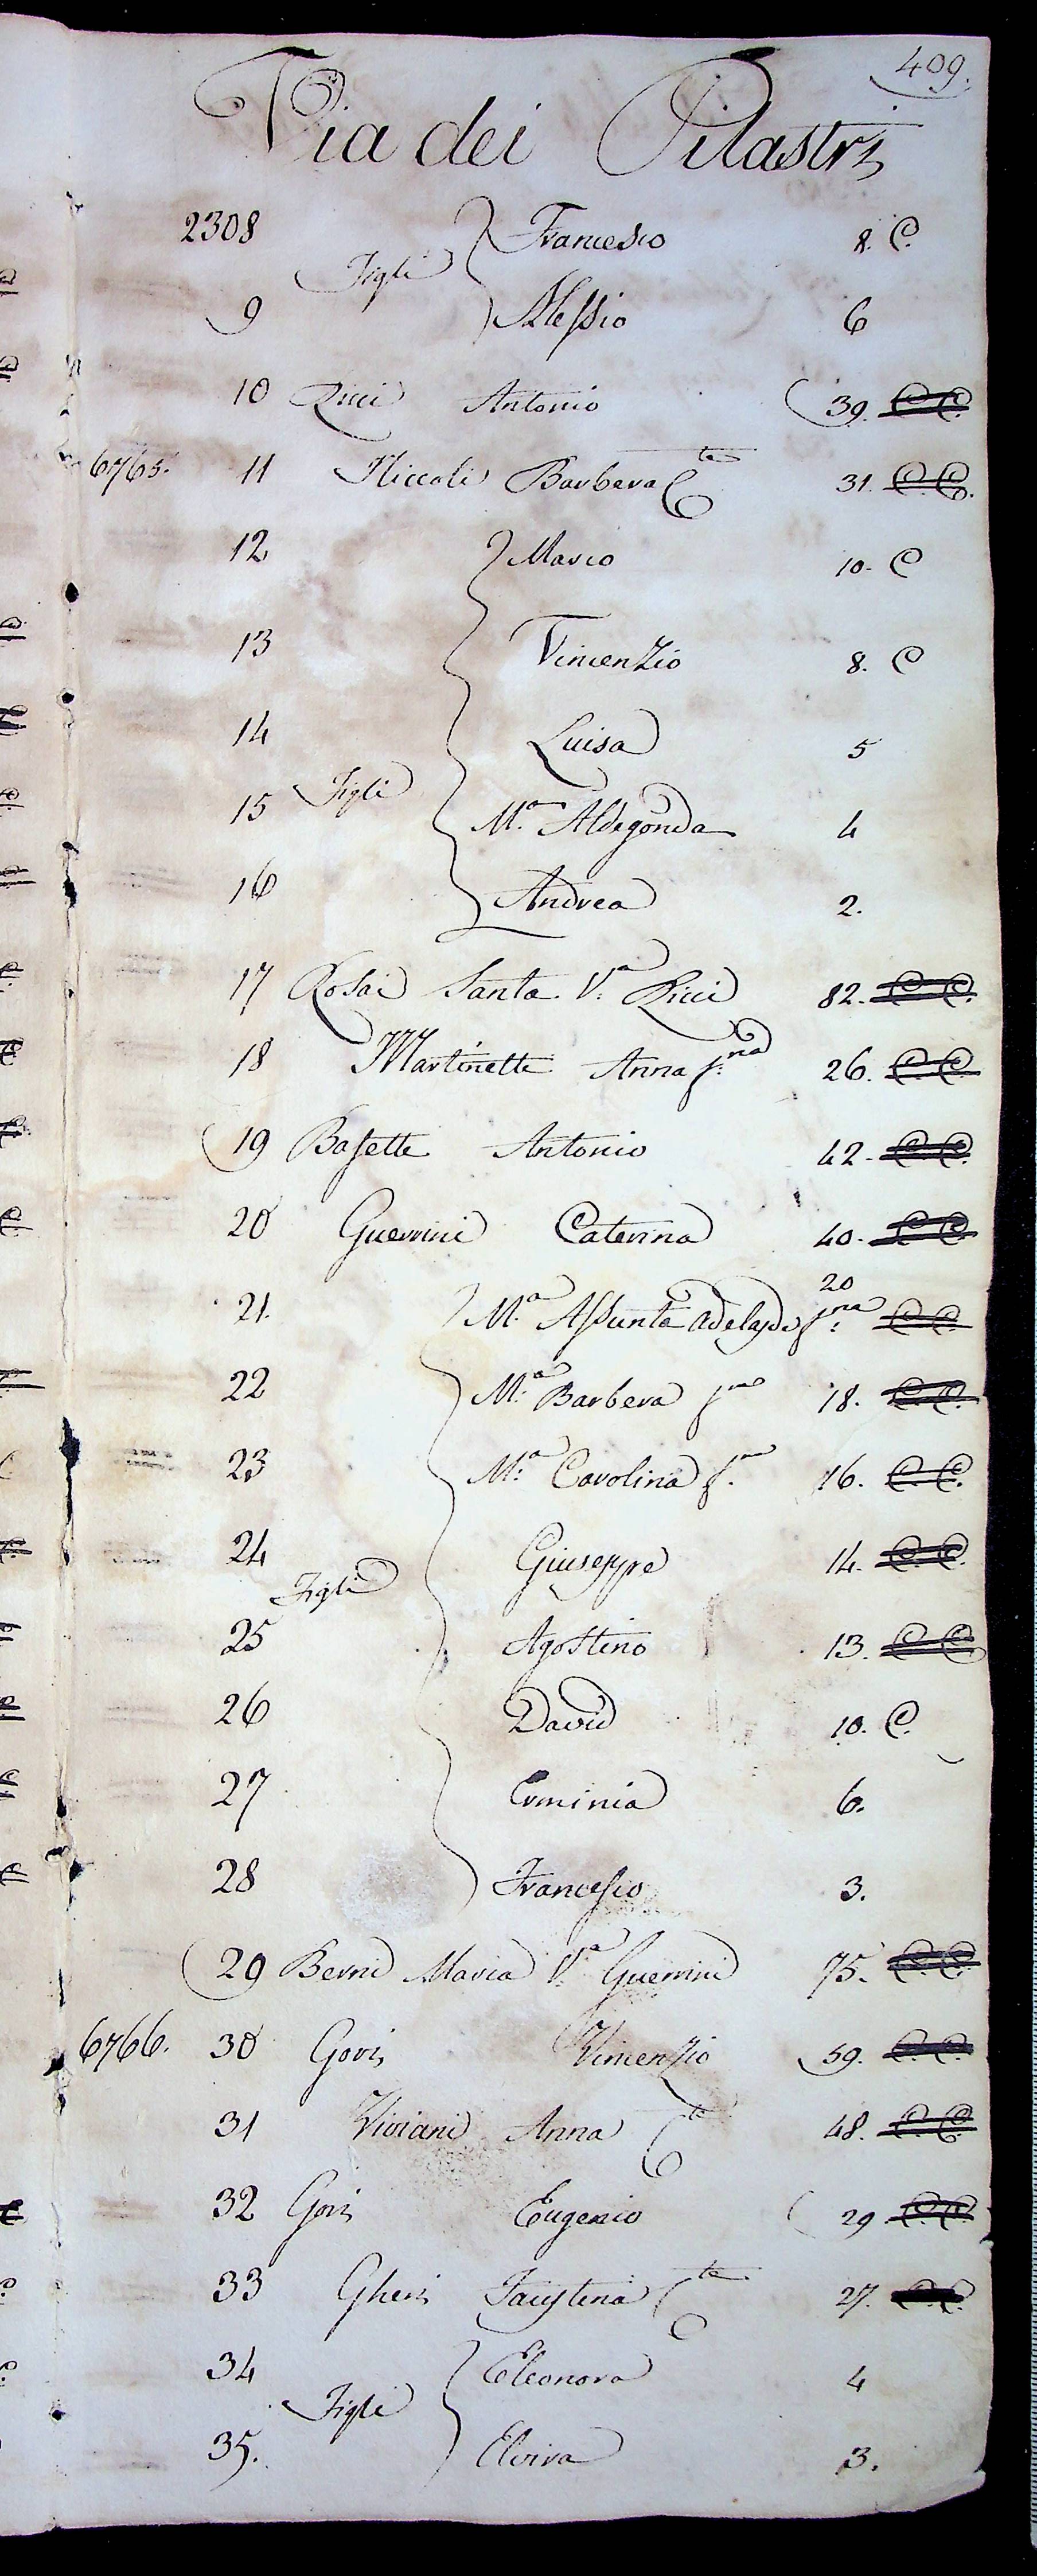 409.
Via dei Pilastri
2308 Francesco 8. C.
Figli
9 Alessio 6
10 Ricci Antonio 39. C. C.
6765. 11 Niccoli Barbera Cte 31. C. C.
12 Marco 10. C
13 Vincenzio 8. C
14 Luisa 5
Figli
15 M.a Aldegonda 4
16 Andrea 2.
17 Rosai Santa V.a Ricci 82. C. C.
18 Martinetti Anna f.na 26. C. C.
19 Basetti Antonio 42. C. C.
20 Guerrini Caterina 40. C. C.
20
21. M.a Assunta Adelayde f.na C. C.
22 M.a Barbera f.na 18. C. C.
23 M.a Carolina f.na 16. C. C.
24 Giuseppe 14. C. C.
Figli
25 Agostino 13. C. C.
26 David 10. C.
27 Erminia 6.
28 Francesco 3.
29 Berni Maria V.a Guerrini 75. C. C.
6766. 30 Gori Vincenzio 59. C. C.
31 Viviani Anna Cte 48. C. C.
32 Gori Eugenio 29. C. C.
33 Gheri Faustina Cte 27. C. C.
34 Eleonora 4
Figli
35. Elvira 3.